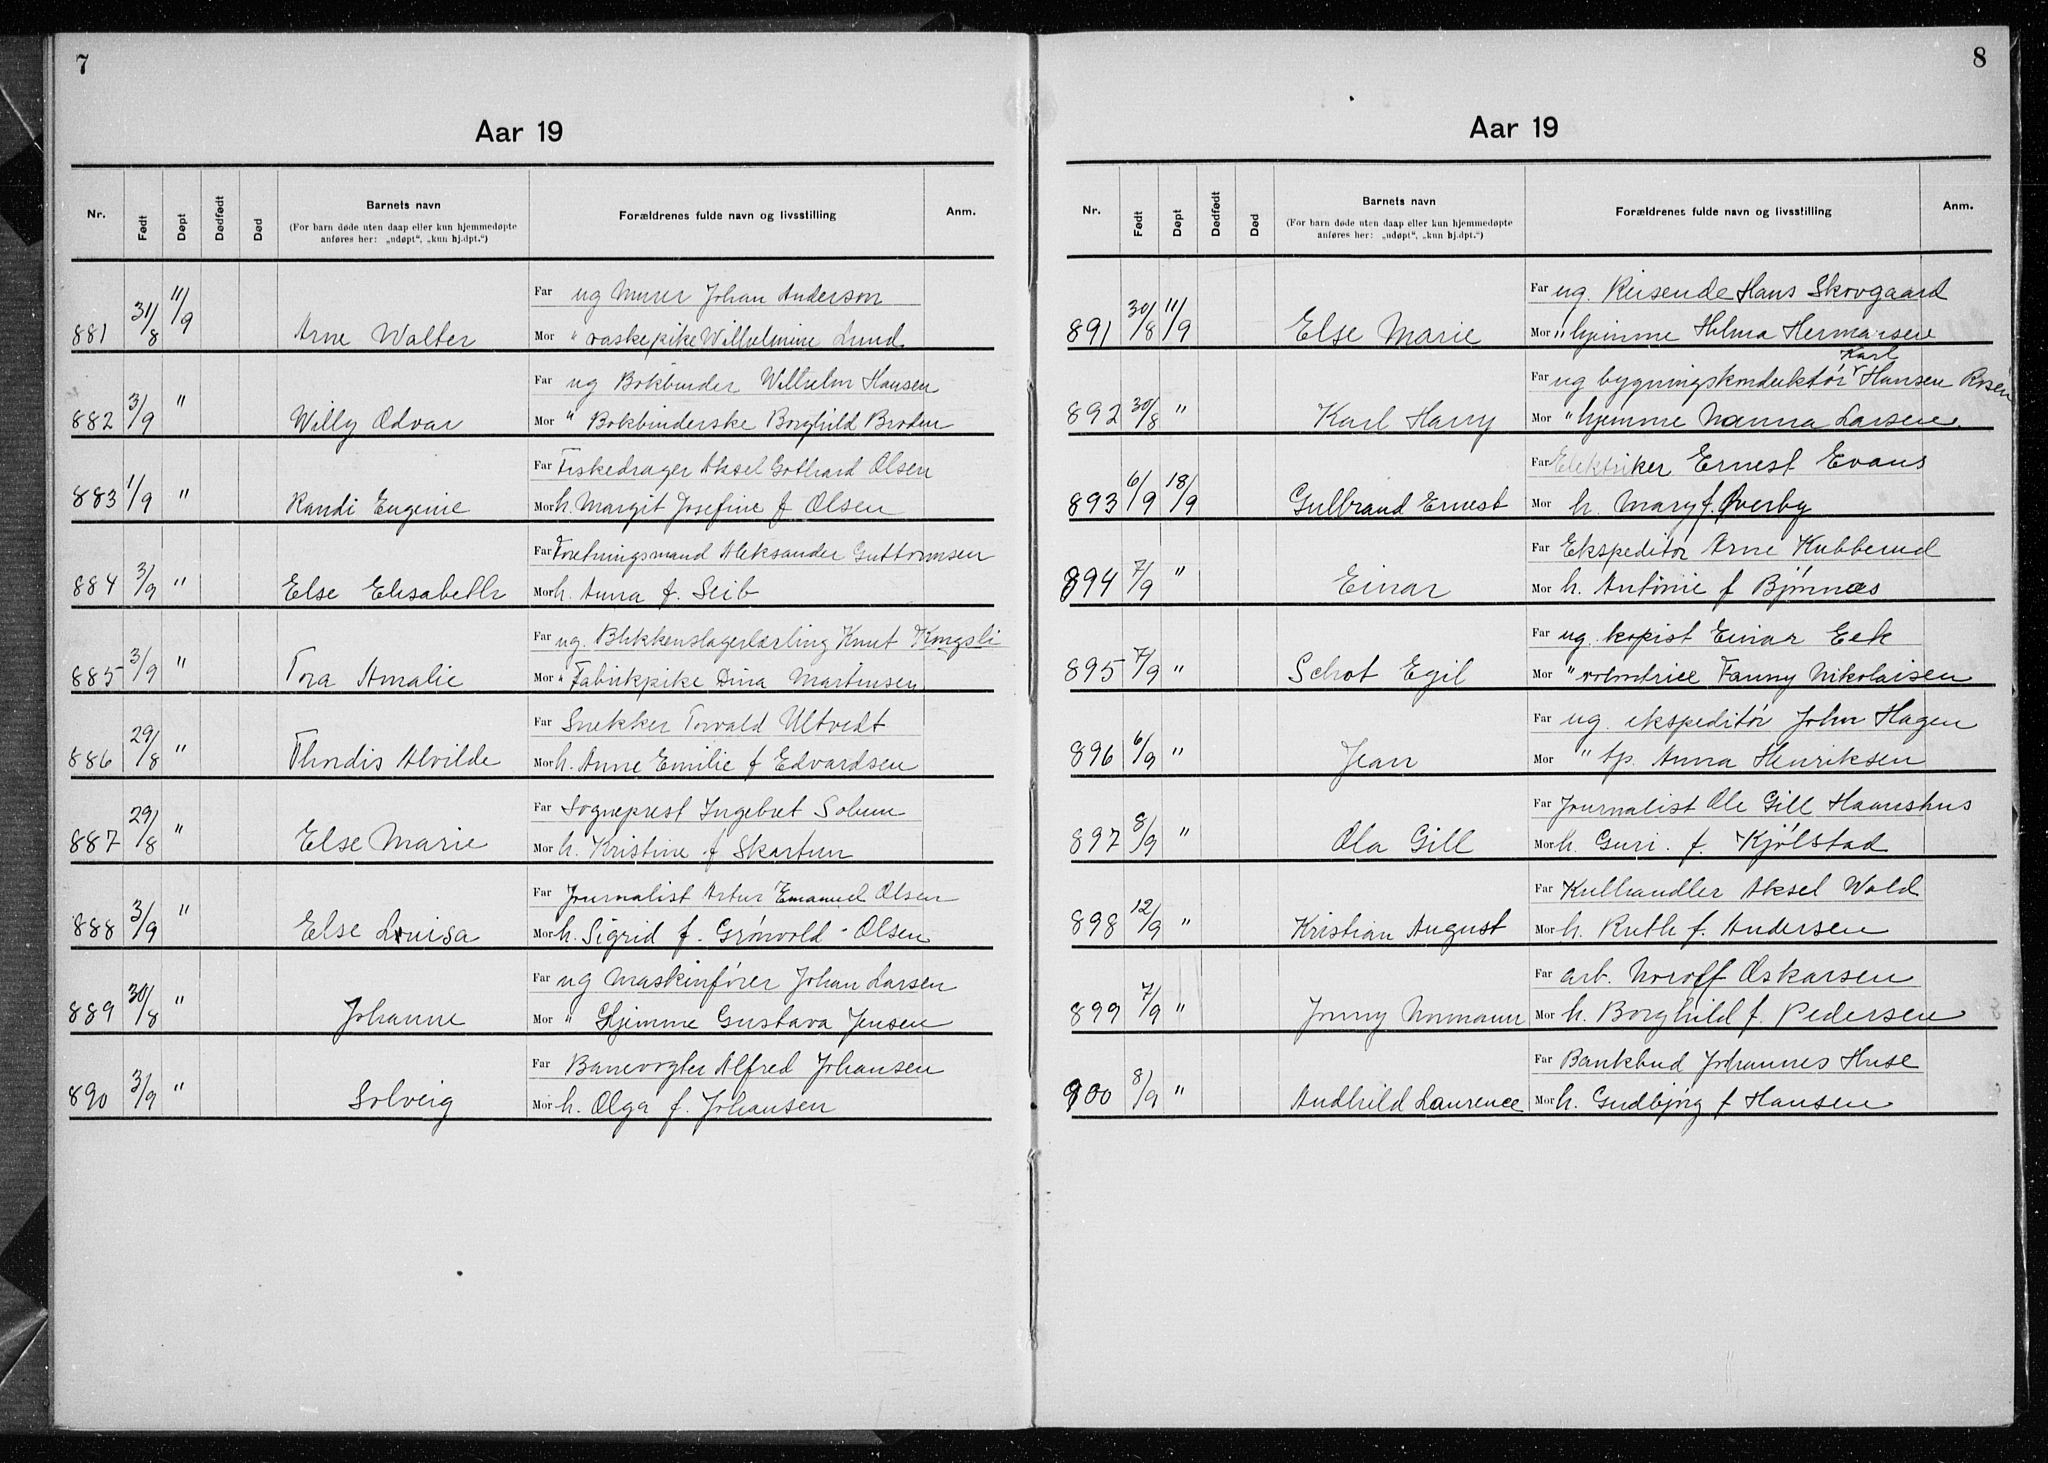 7
Aar 19
Nr. Født Døpt Dødfødt Død Barnets navn Forældrenes fulde navn og livsstilling Anm.
(For barn døde uten daap eller kun hjemmedøpte
anføres her: „udøpt“, „kun hj.dpt.“)
Far ug Murer Johan Anderson
881 31/8 11/9 Arne Walter Mor " vaskepike Wilhelmine Lund
Far ug Bokbinder Wilhelm Hansen
882 3/9 " Willy Odvar Mor " Bokbinderske Borghild Broden
Far Fiskedrager Aksel Gothard Olsen
883 1/9 " Randi Eugenie Mor h. Margit Josefine f Olsen
Far Forretningsmand Aleksander Guttormsen
884 3/9 " Else Elisabeth Mor h. Anna f. Seib
Far ug. Blikkenslagerlærling Knut Kongsli
885 3/9 " Tora Amalie Mor " Fabrikpike Dina Martinsen
Far Snekker Torvald Ultvedt
886 29/8 " Thordis Alvilde Mor h. Anne Emilie f Edvardsen
Far Sogneprest Ingebret Solum
887 29/8 " Else Marie Mor h. Kristine f Skartun
Far Journalist Artur Emanuel Olsen
888 3/9 " Else Louisa Mor h. Sigrid f. Grønvold - Olsen
Far ug Maskinfører Johan Larsen
889 30/8 " Johanne Mor " Hjemme Gustava Jensen
Far Banevogter Alfred Johansen
890 3/9 " Solveig Mor h. Olga f. Johansen
8
Aar 19
Nr. Født Døpt Dødfødt Død Barnets navn Forældrenes fulde navn og livsstilling Anm.
(For barn døde uten daap eller kun hjemmedøpte
anføres her: „udøpt“, „kun hj.dpt.“)
Far ug. Reisende Hans Skovgaard
891 30/8 11/9 Else Marie Mor " hjemme Hilma Hermansen
Karl
Far ug bygningskonduktør Hansen Rosen
892 30/8 " Karl Harry Mor " hjemme Nanna Larsen
Far Elektriker Ernest Evans
893 6/9 18/9 Gulbrand Ernest Mor h. Mary f. Øverby
Far Ekspeditør Arne Kubberud
894 7/9 " Einar Mor h. Antonie f Bjørnnæs
Far ug. kopist Einar Eek
895 7/9 " Schot Egil Mor " Fanny Nikolaisen
Far ug. ekspeditør John Hagen
896 6/9 " Jean Mor " tjp. Anna Henriksen
Far Journalist Ole Gill Haanshus
897 8/9 " Ola Gill Mor h. Guri. f. Kjølstad
Far Kulhandler Aksel Wold
898 12/9 " Kristian August Mor h. Ruth f. Andersen
Far arb. Noroff Oskarsen
899 7/9 " Jonny Normann Mor h. Borghild f. Pedersen
Far Bankbud Johannes Huse
900 8/9 " Andhild Laurence Mor h. Gudbjørg f Hansen